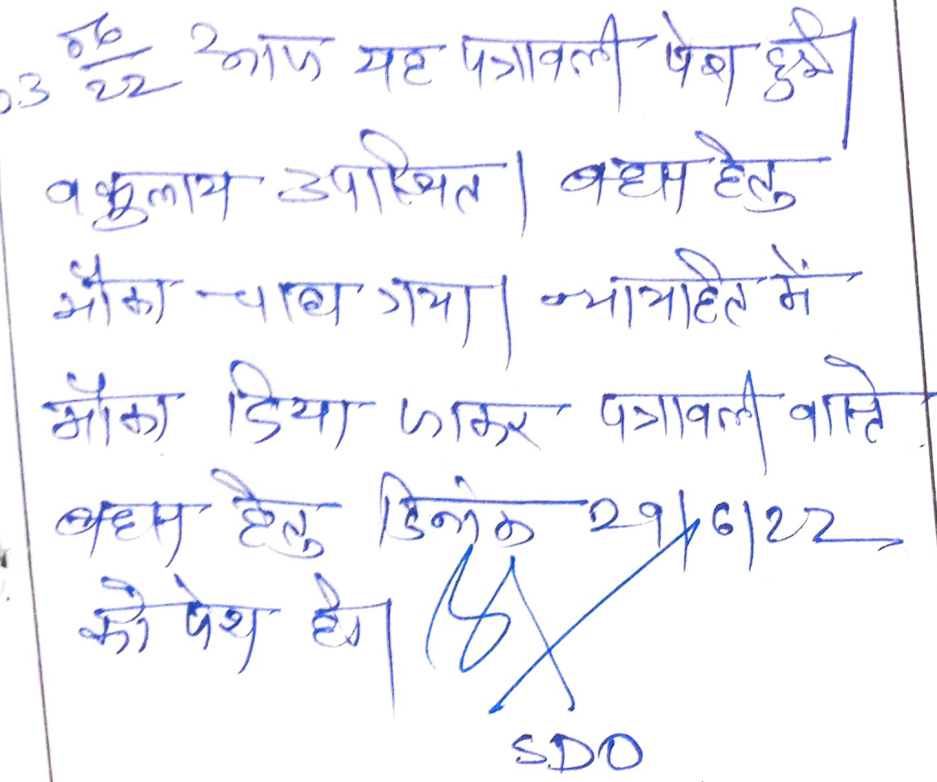 03 06/22 आज यह पत्रावली पेश हुई।
वकुलाय उपस्थित। बहस हेतु
मौका चाहा गया। न्यायहित में
मौका दिया जाकर पत्रावली वास्ते
बहस हेतु दिनांक 29/6/22
को पेश हो।
SDO